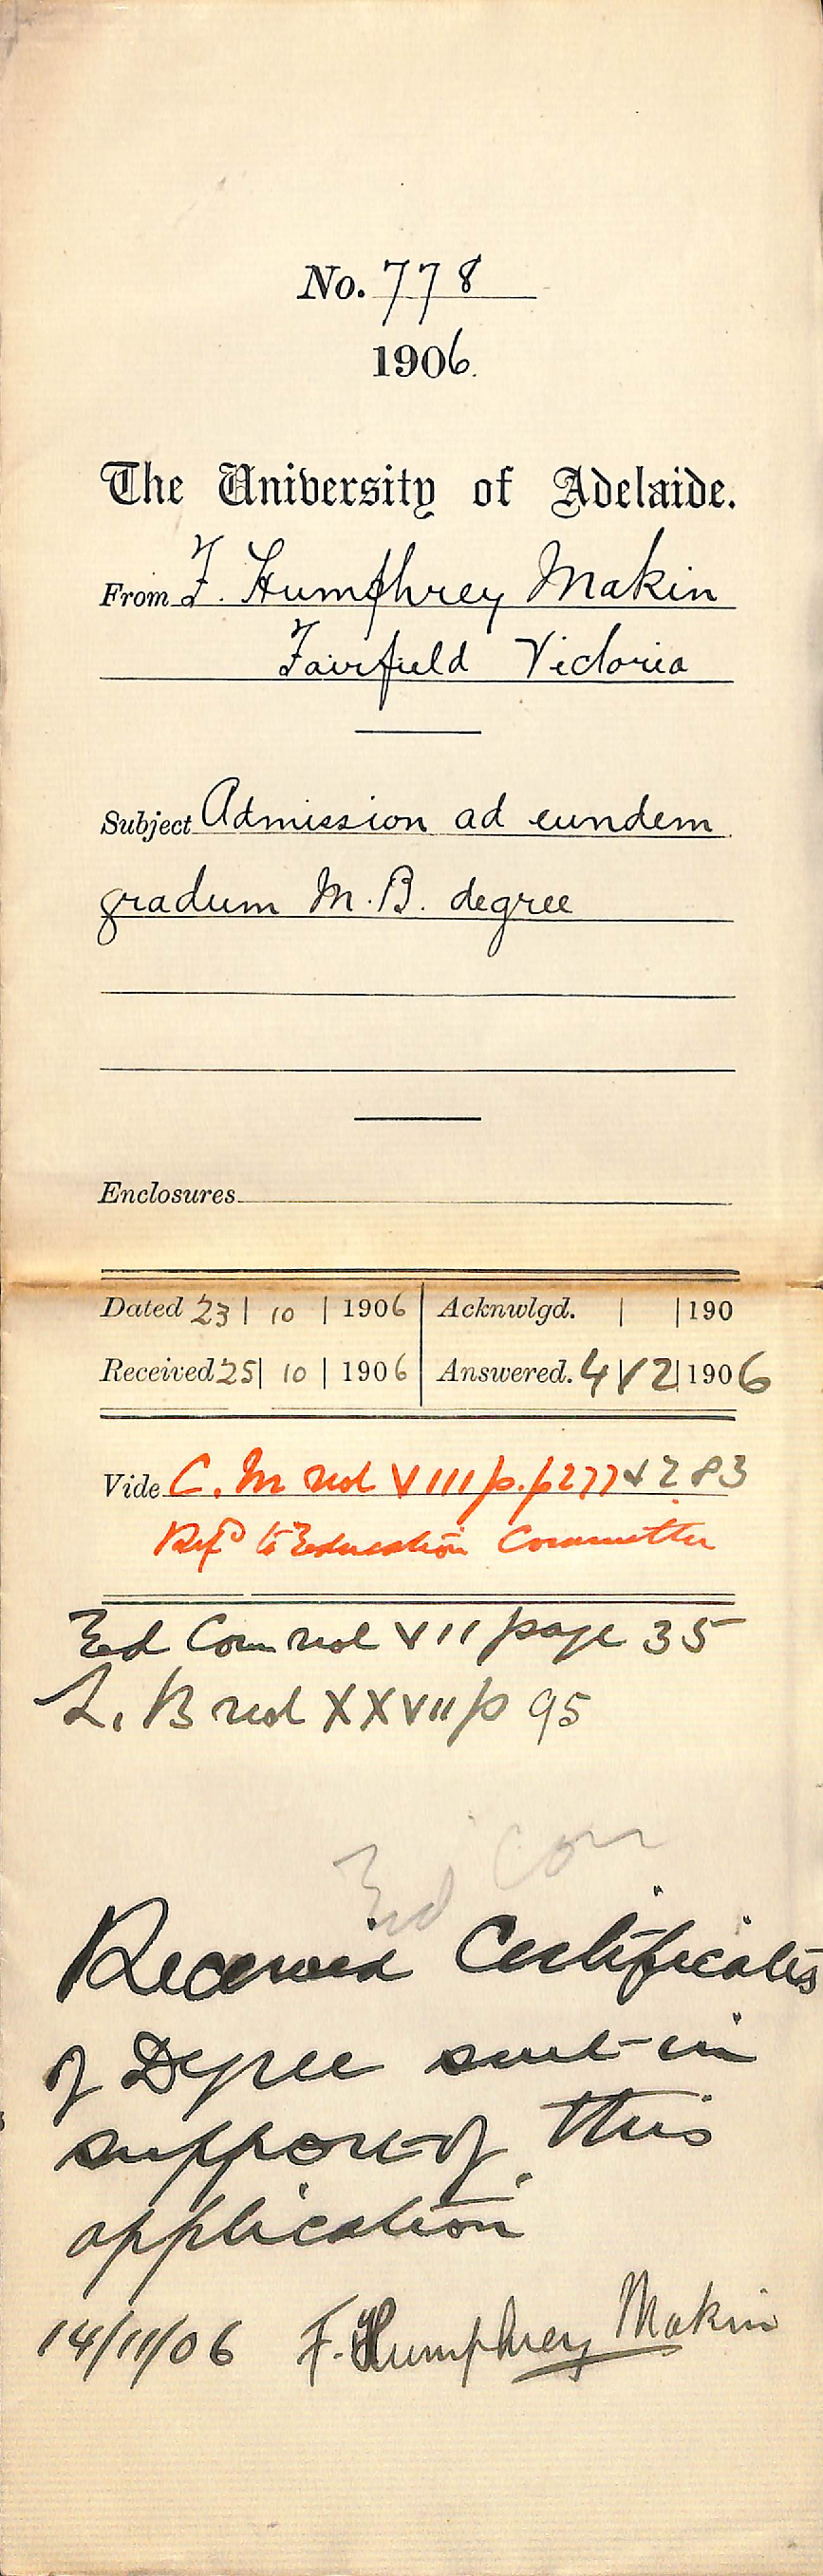 No. 778
1906.
The University of Adelaide.
From F. Humphrey Makin
Fairfield Victoria
Subject Admission ad eundem
gradum M.B. degree
Enclosures
Dated 23 | 10 | 1906 Acknwlgd. | | 190
Received 25 | 10 | 1906 Answered. 4 | 12 | 1906
Vide C. M vol VIII p.p 277 & 283
Refd to Education Committee
Ed Com vol VII page 35
L. B vol XXVII p 95
Ed Com
Received Certificates
of Degree sent in
support of this
application
14/11/06 F. Humphrey Makin